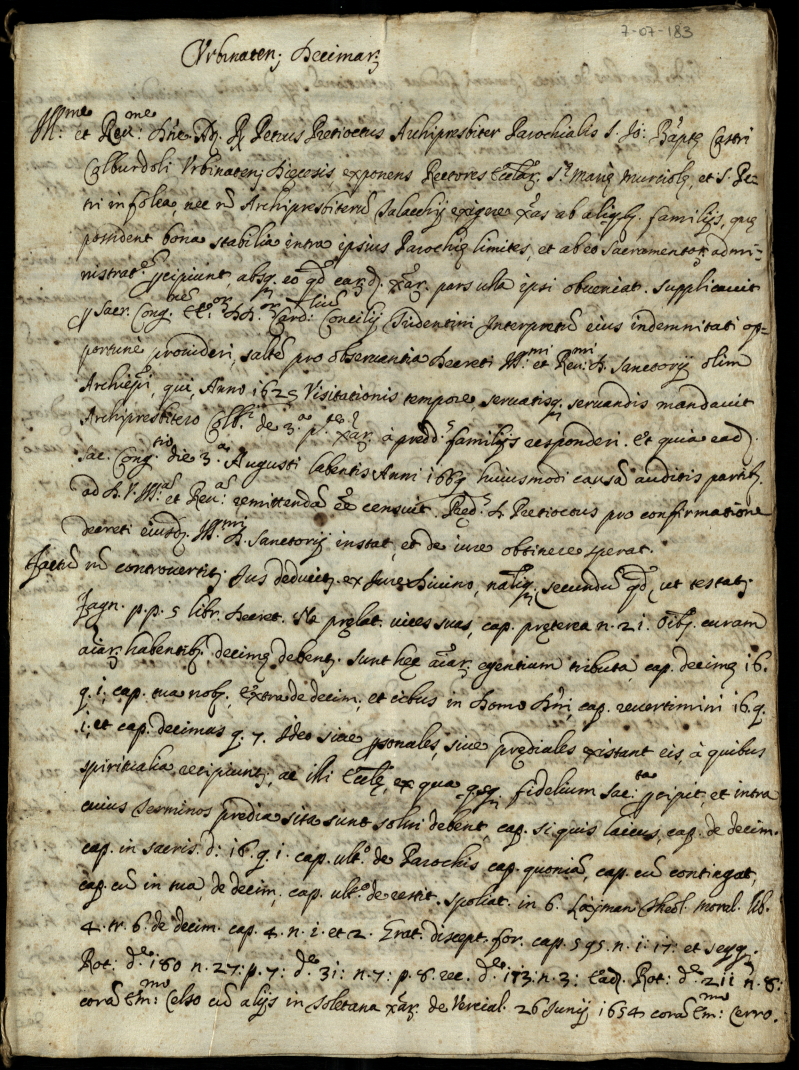 7-07-183
Urbinaten; Decimar;
Ill:me et Reu:me Dñe. Ad. R. Petrus Pretioctus Archipresbiter Parochialis S. Jo: Baptę Castri
Colburdoli Urbinaten; Dięcesis, exponens Rectores Eccliar; S.te Marię Murciolę, et S. Pe-
tri in folea, nec nõ Archipresbiterũ Salacchij exigere Xãs ab aliqb; familijs, quę
possident bona stabilia intra ipsius Parochię limites, et ab eo Sacramentor; admi-
nistrat.m pcipiunt, absq; eo qd eard; Xãr; pars ulla ipsi obueniat. Supplicauit
p Sacr. Cong. Card: Concilij Tridentini Interpretũ eius indemnitati op-
portunè prouideri, saltẽ pro obseruantia Decreti Ill:mi et Reu:mi D. Sanctorij olim
Archiepi, qui, Anno 1625 Visitationis tempore, seruatisq; seruandis mandauit
Archipresbitero Colb: de 3.a p.te Xãr; à predd.s familijs responderi. Et quia ead;
Sac. Cong.tio die 3.a Augusti labentis Anni 1669 huiusmodi causã auditis partib;
ad D. V. Ill.ã et Reu.ã remittendã eẽ censuit. Pręd.s D. Pretioctus pro confirmatione
decreti eiusd; Ill:mi D. Sanctorij instat, et de iure obtinere sperat.
Factũ nõ controuertit; Jus deducit; ex Jure Diuino, nãliq; secundũ qd, ut testat;
Fagn. p. p. 5 libr. Decret. Ne pręlat. uices suas, cap. pręterea n. 21. Oib; curam
aiãr; habentib; decimę debent; Sunt hęc aiãr; egentium tributa, cap. decimę 16.
q. i, cap. tua nob;, extra de decim; et cibus in Domo Dñi, cap. reuertimini 16. q.
i, et cap. decimas q. 7. Ideo siue psonales, siue prędiales existant eis, à quibus
spiritialia recipiunt; ac illi Ecclę, ex qua fidelium Sac:ta pcipit, et intra
cuius Terminos predia sita sunt solui debent cap. si quis laicus, cap. de decim.
cap. in sacris. d: 16. q. i. cap. ult.o de Parochis, cap. quoniã, cap. cũ contingat,
cap. cũ in tua, de decim, cap. ult.o de restit. spoliat. in 6. Laÿman Theol. moral. lib.
4. tr. 6. de decim. cap. 4. n. i. et 2. Grat. discept. for. cap. 595. n. i. 17: et seqq;
Rot: d.e 180 n. 27: p. 7: d.e 31: n. 7: p. 8. rec. d.e 173: n. 3: Ead; Rot: d.e 211 n. 8:
corã Em:mo Celso cũ alijs in Toletana Xãr; de Vercial. 26 Junij 1654 corã Em:mo Cerro.